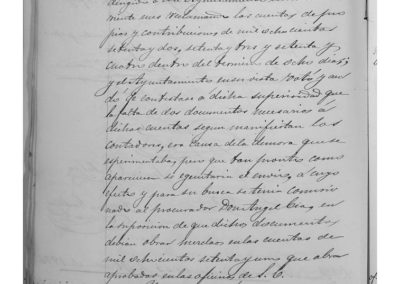 mente sus reclamando las cuentas de pro-
pios y contribuciones de mil ochocientos
setenta y dos, setenta y tres y setenta y
cuatro dentro del termino de ocho dias;
y el Ayuntamiento en su vista votó y acor-
dó se contestase a dicha superioridad que
la falta de dos documentos necesarios á
dichas cuentas segun manifiestan los
contadores, era causa de la demora que se
esperimentaba, pero que tan pronto como
aparezcan se egecutaria el envio, á cuyo
efecto y para su busca se tenia comisio-
nado al procurador Don Angel en
la suposicion de que dichos documentos
debian obrar en las cuentas de
mil ochocientos setenta y uno que obran
aprobadas en las oficinas de S. E.